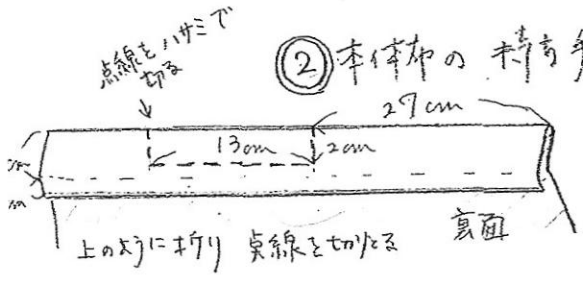 点線をハサミで
切る
②本体布の持ち手
27cm
13cm
2cm
上のように折り 点線を切りとる
裏面